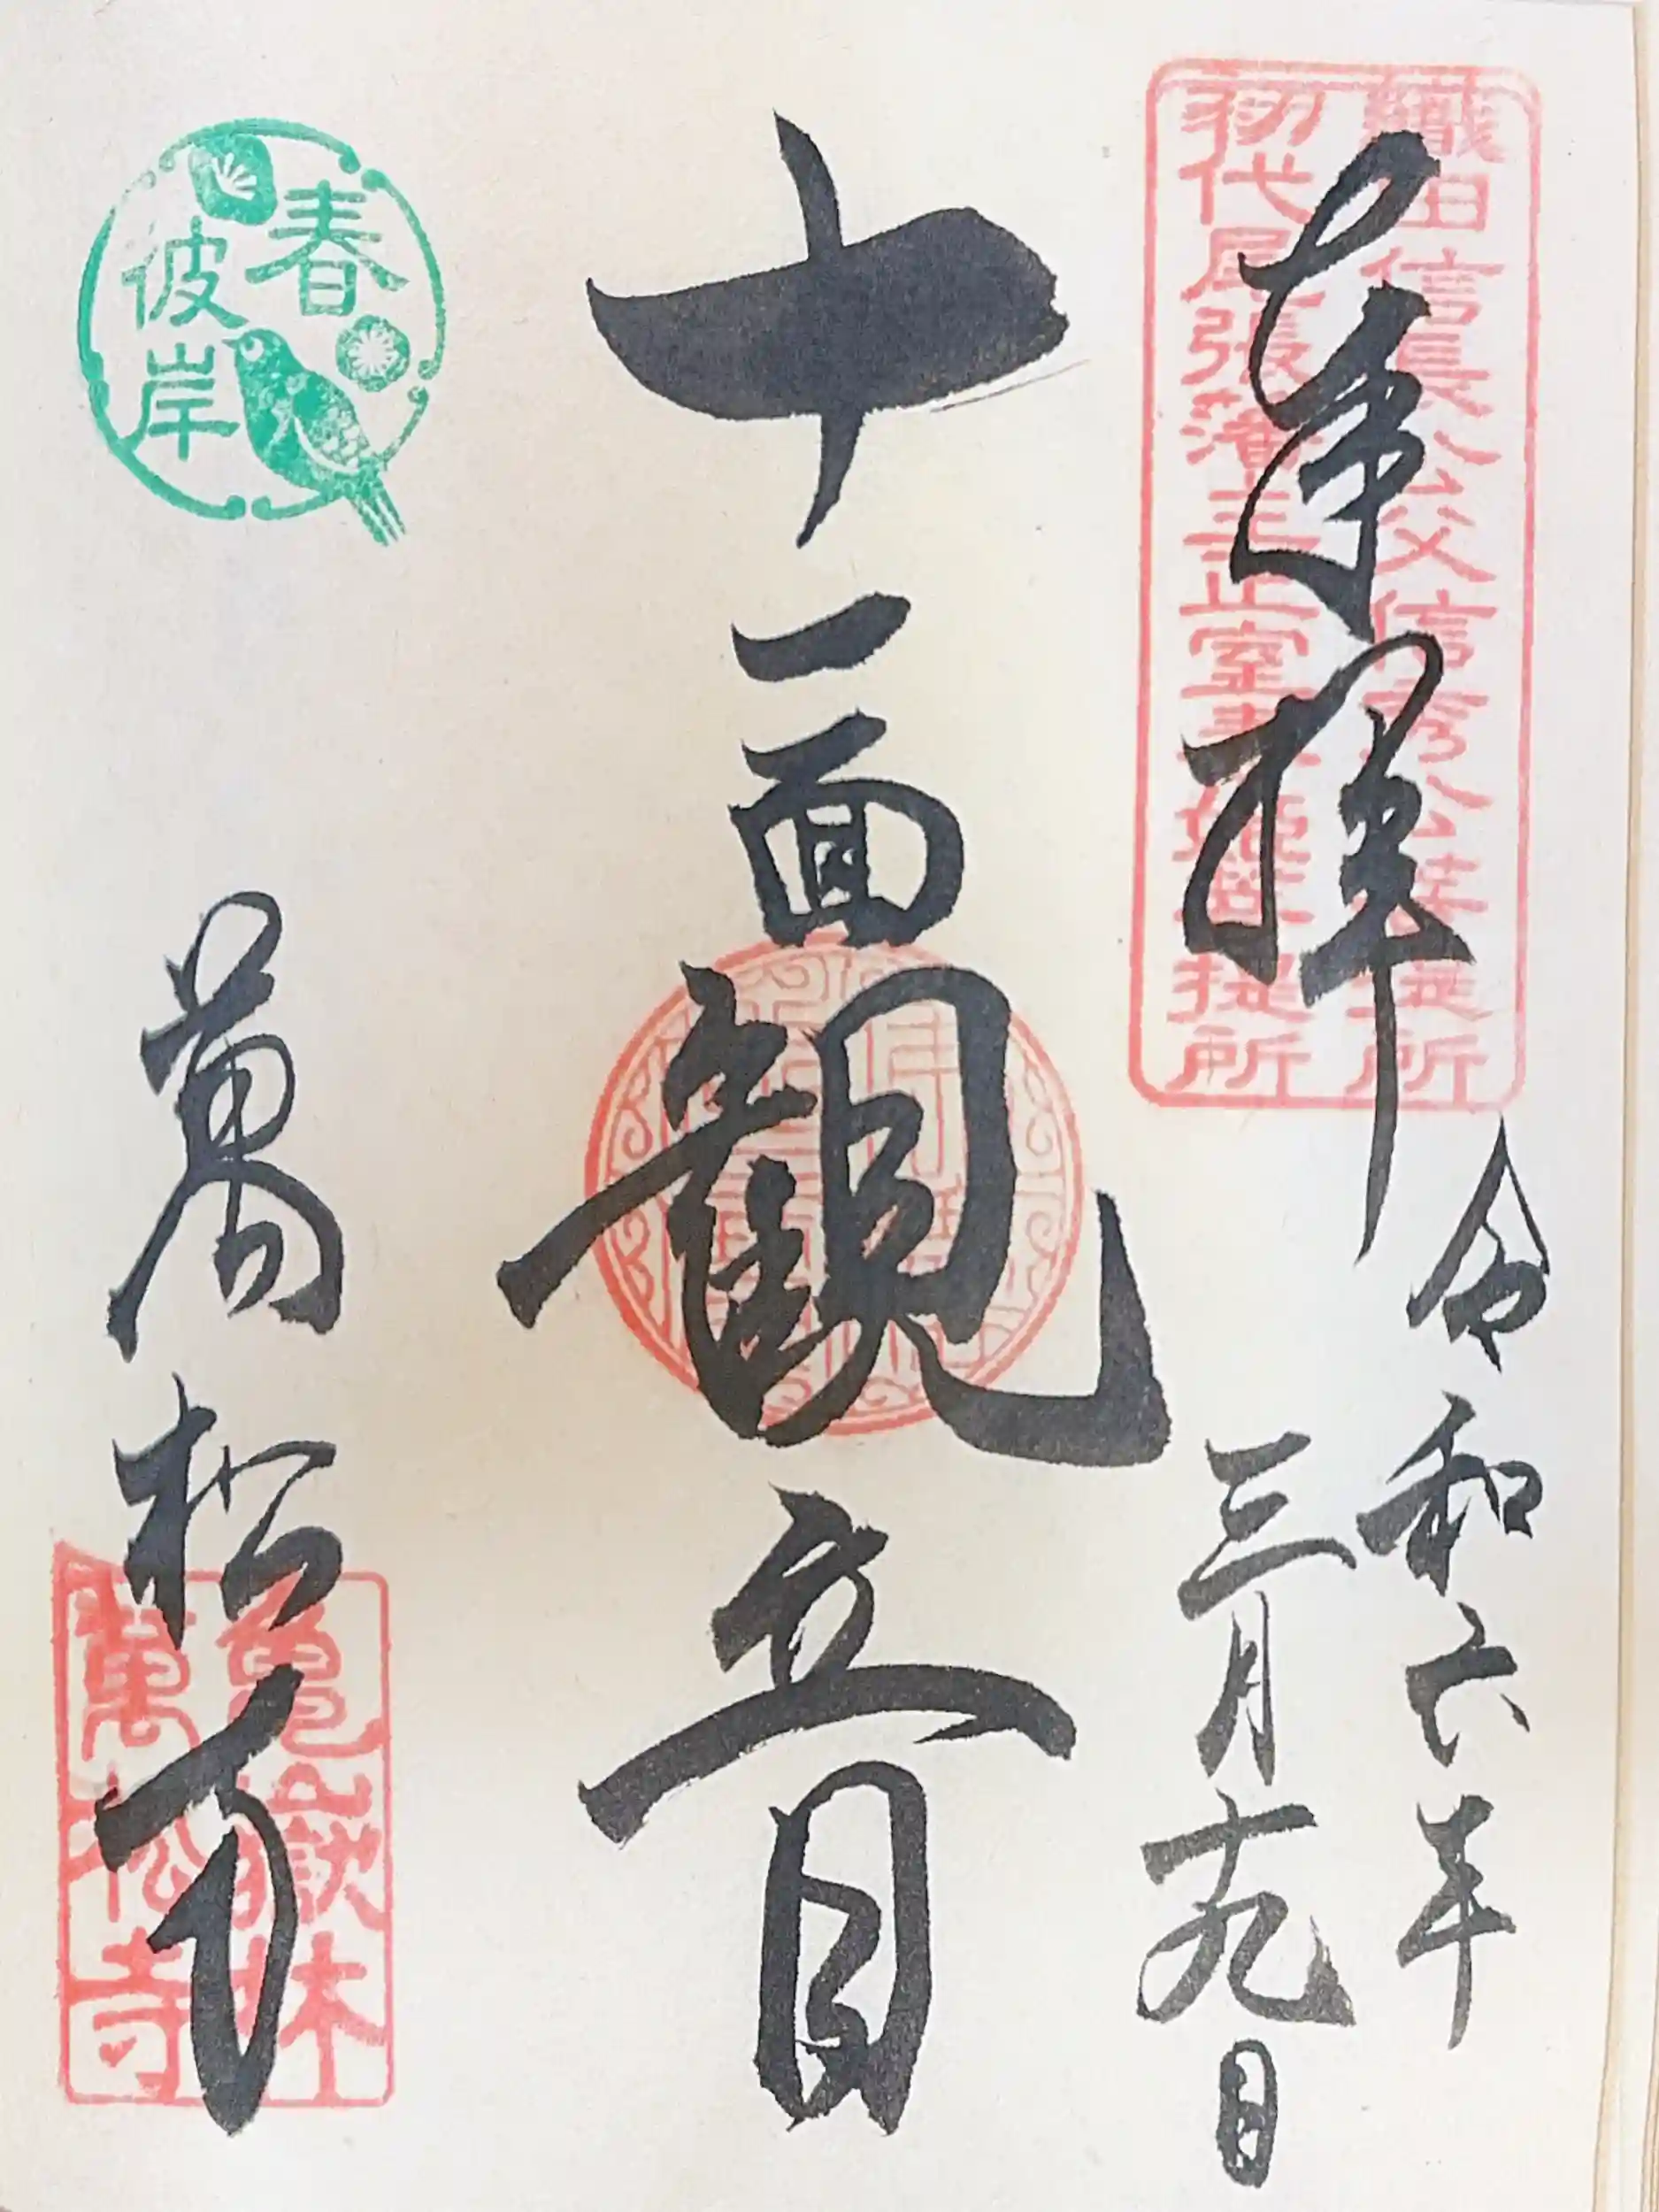 奉拝
織田信長公父信秀公菩提所
初代尾張藩主正室春姫菩提所
令和六年
三月十九日
十一面観立日
春
彼岸
萬松寺
亀岳林
萬松寺